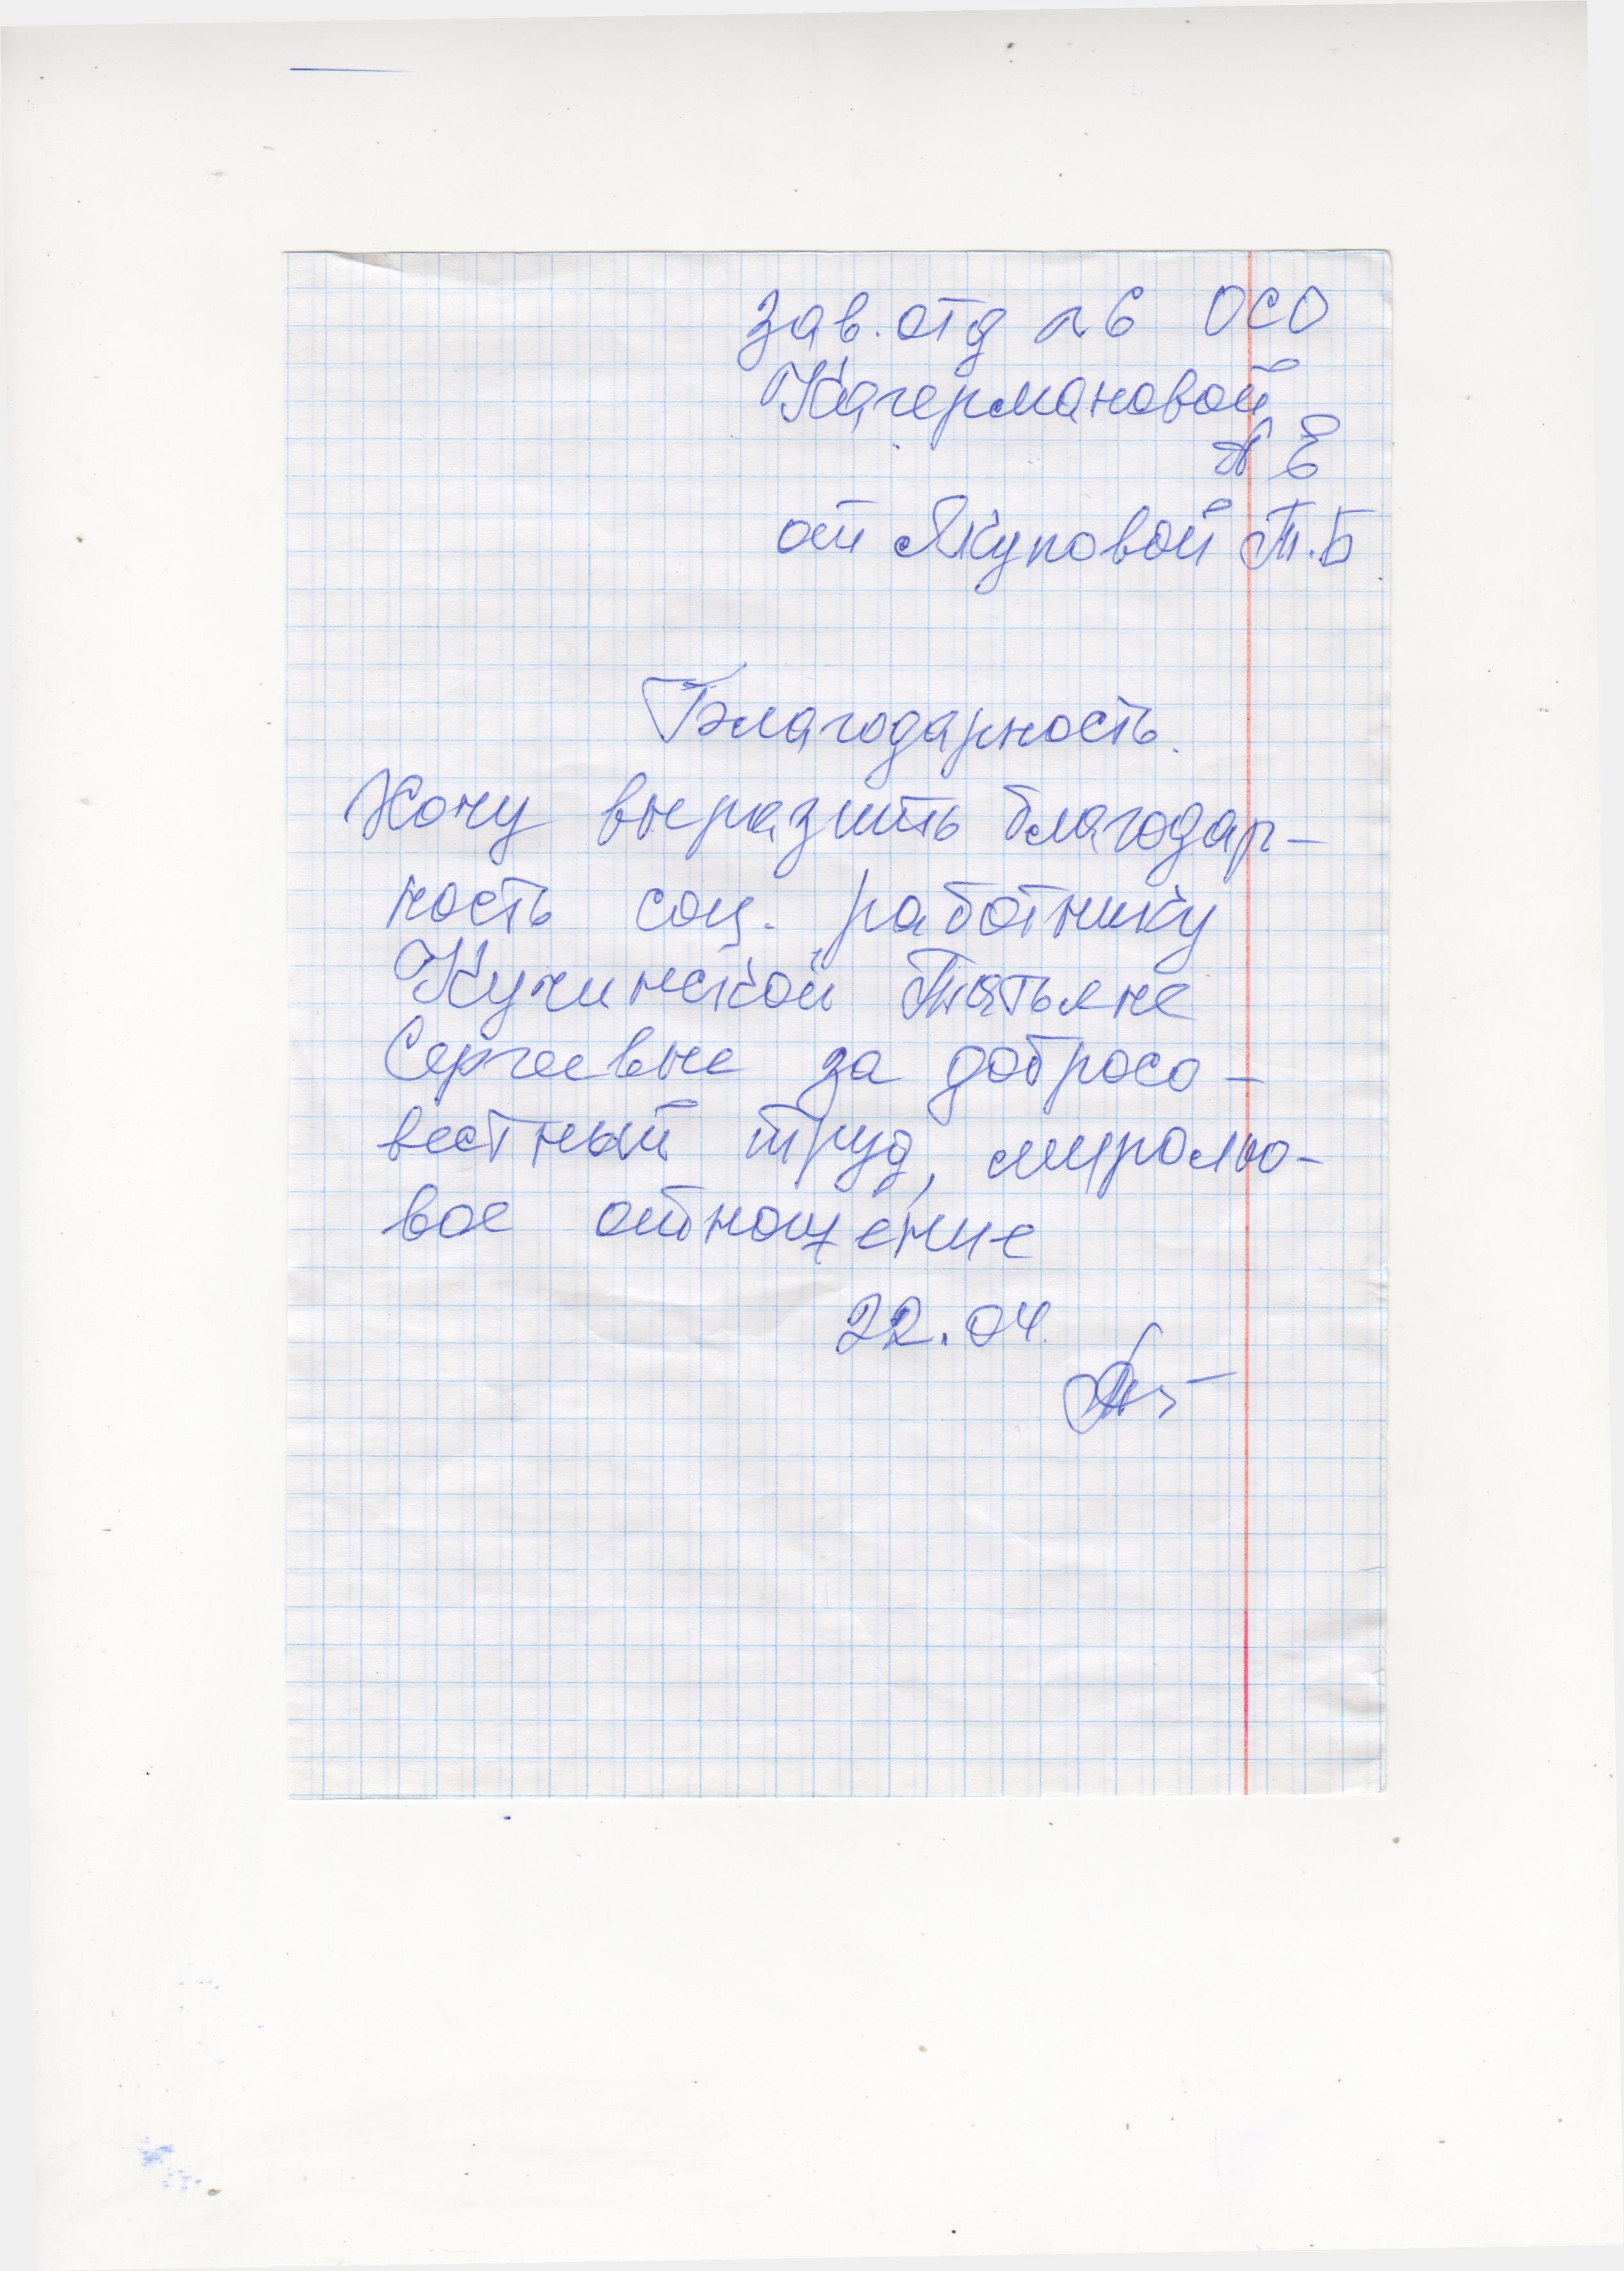 Зав. отд №6 ОСО
Кагермановой
А Е
от Якуповой Т.Б
Благодарность.
Хочу выразить благодар-
ность соц. работнику
Кучинской Татьяне
Сергеевне за добросо-
вестный труд,
вое отношение
22.04